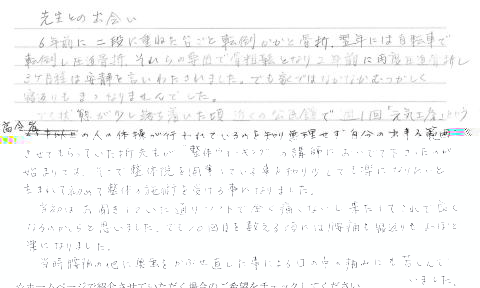 先生との出会い
6年前に二段に重ねた台ごと転倒しかかと骨折、翌年には自転車で
転倒し圧迫骨折、それらの要因で骨粗鬆となり2年前に再度圧迫骨折し
3ケ月程は安静を言いわたされました。でも家ではなかなかむつかしく
寝返りもままなりませんでした。
状態が少し落ち着いた頃 近くの公民館で 週1回「元気工房」という
高令者 の人の体操が行われているのを知り無理せず自分の出来る範囲で
させてもらっていた折 先生が "整体 " の講師においで下さったのが
始まりです。そこで整体院を開業している事を知り少しでも楽になりたいと
生まれて初めて整体の施術を受ける事になりました。
当初はお聞きしていた通りソフトで全く痛くないし果たしてこれで良く
なるのかしらと思いました。でも 回目を数える頃には腰痛も寝返りもよほど
楽になりました。
当時腰痛の他に風邪を 直した事による の痛みにも苦しんで
いました。
☆ホームページで紹介させていただく場合のご希望をチェックしてください